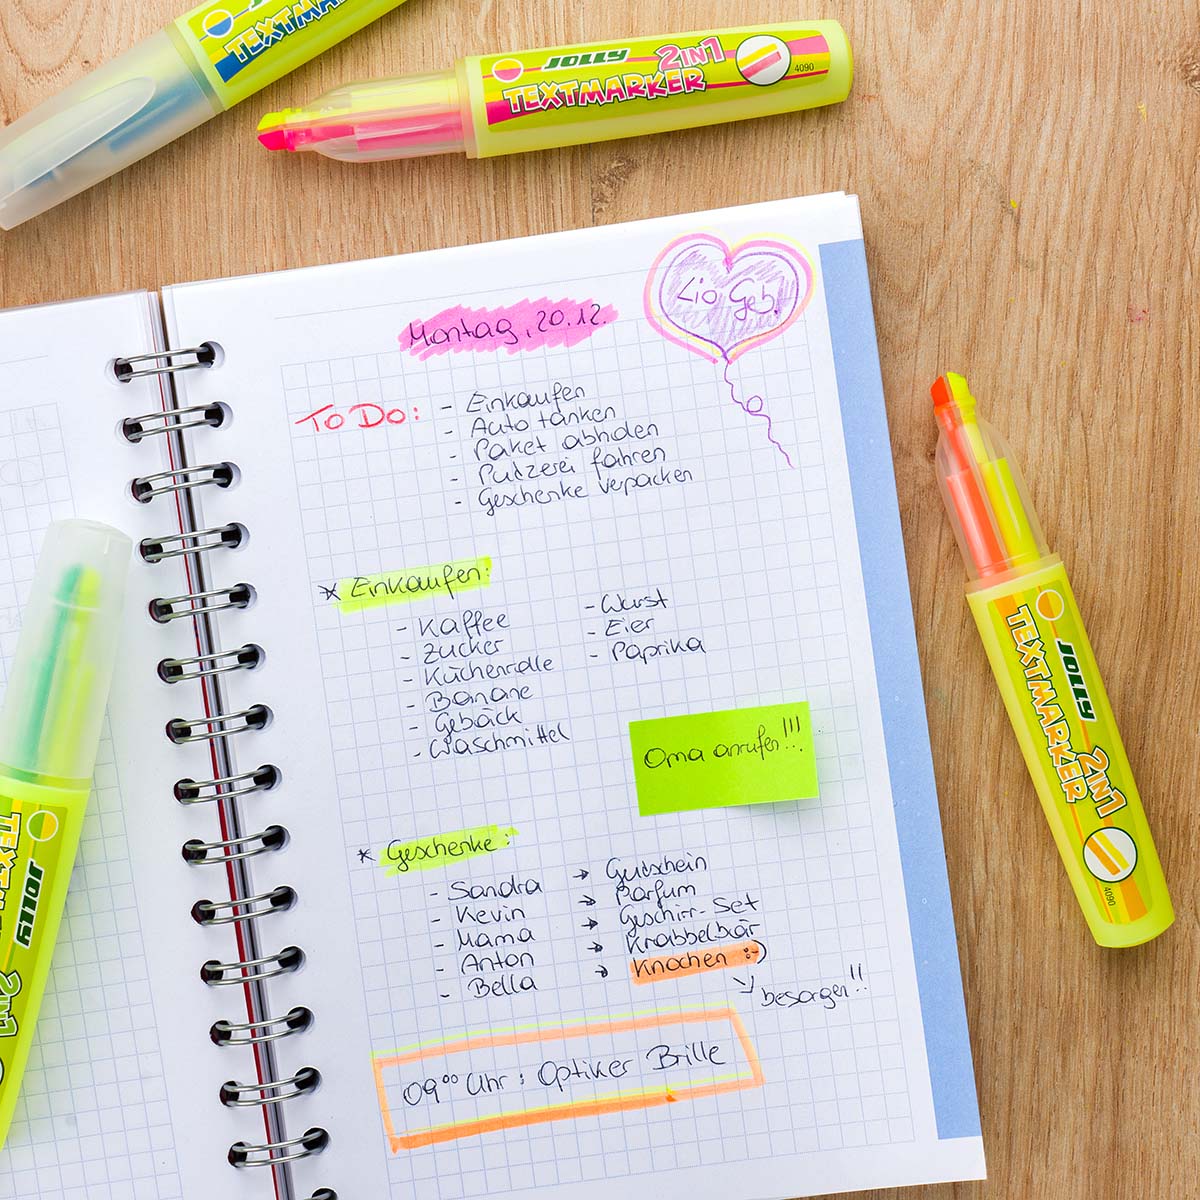 TEXTMARKER
JOLLY 2IN1
TEXTMARKER
4090
Montag, 20.12.
Lio Geb.!
To Do:
- Einkaufen
- Auto tanken
- Paket abholen
- Putzerei fahren
- Geschenke verpacken
* Einkaufen:
- Kaffee
- Zucker
- Küchenrolle
- Banane
- Gebäck
- Waschmittel
- Wurst
- Eier
- Paprika
Oma anrufen!!!
* Geschenke:
- Sandra → Gutschein
- Kevin → Parfum
- Mama → Geschirr-Set
- Anton → Krabbelbär
- Bella → Knochen :-)
besorgen!!
09⁰⁰ Uhr: Optiker Brille
JOLLY
TEXTMARKER 2IN1
4090
JOLLY
2IN1